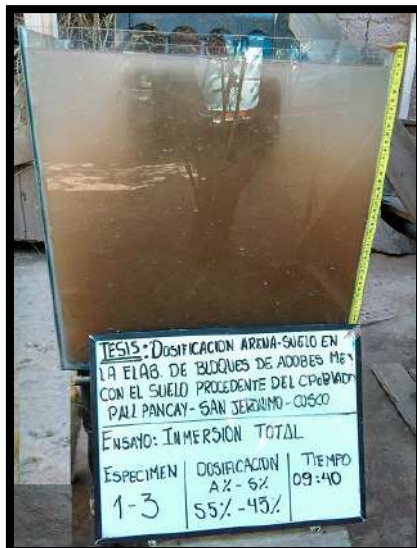 TESIS: DOSIFICACION ARENA-SUELO EN
LA ELAB. DE BLOQUES DE ADOBES
CON EL SUELO PROCEDENTE DEL
PALLPANCAY - SAN JERONIMO - CUSCO
ENSAYO: INMERSION TOTAL
ESPECIMEN
1-3
DOSIFICACION
A% - S%
55% - 45%
TIEMPO
09:40